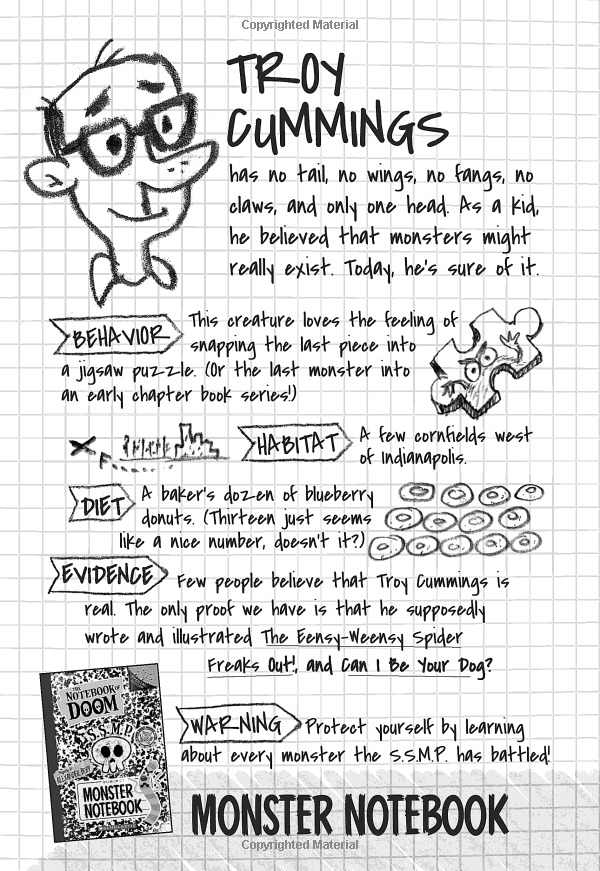 Copyrighted Material
TROY
CUMMINGS
has no tail, no wings, no fangs, no
claws, and only one head. As a kid,
he believed that monsters might
really exist. Today, he's sure of it.
BEHAVIOR
This creature loves the feeling of
snapping the last piece into
a jigsaw puzzle. (Or the last monster into
an early chapter book series!)
HABITAT
A few cornfields west
of Indianapolis.
DIET
A baker's dozen of blueberry
donuts. (Thirteen just seems
like a nice number, doesn't it?)
EVIDENCE
Few people believe that Troy Cummings is
real. The only proof we have is that he supposedly
wrote and illustrated The Eensy-Weensy Spider
Freaks Out!, and Can I Be Your Dog?
THE
NOTEBOOK OF
DOOM
S.S.M.P.
MONSTER
NOTEBOOK
WARNING
Protect yourself by learning
about every monster the S.S.M.P. has battled!
MONSTER NOTEBOOK
Copyrighted Material